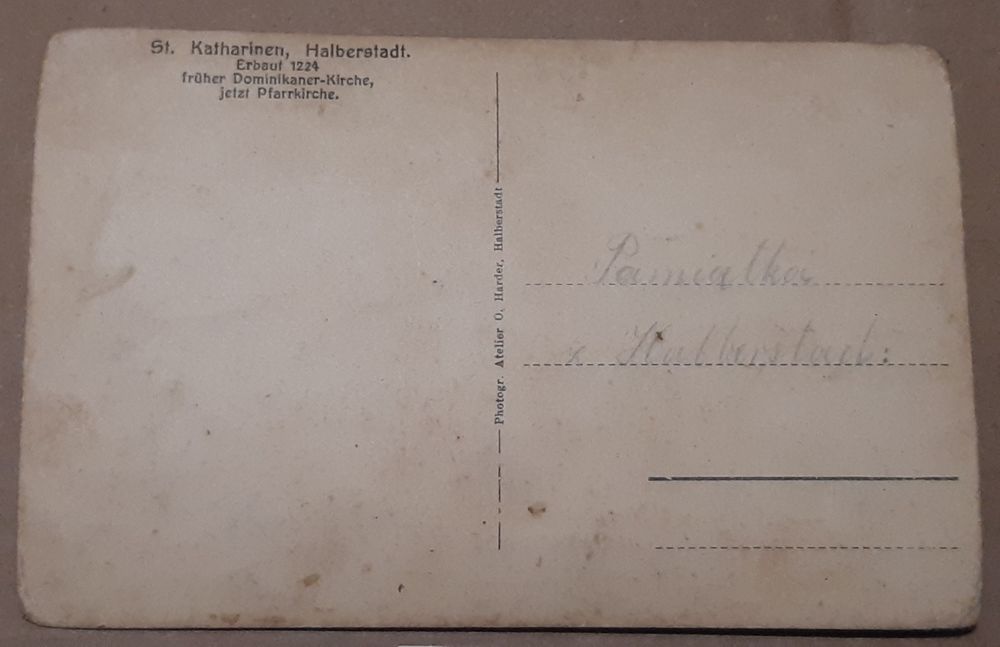 St. Katharinen, Halberstadt.
Erbaut 1224
früher Dominikaner-Kirche,
jetzt Pfarrkirche.
Photogr. Atelier O. Harder, Halberstadt
Pamiątka
z Halberstadt: